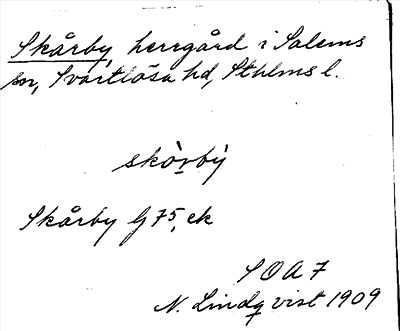 Skårby, herrgård i Salems
sn, Svartlösa hd, Sthlms l.
skòrbỳ
Skårby G 75, ek
SOA 7
N. Lindqvist 1909